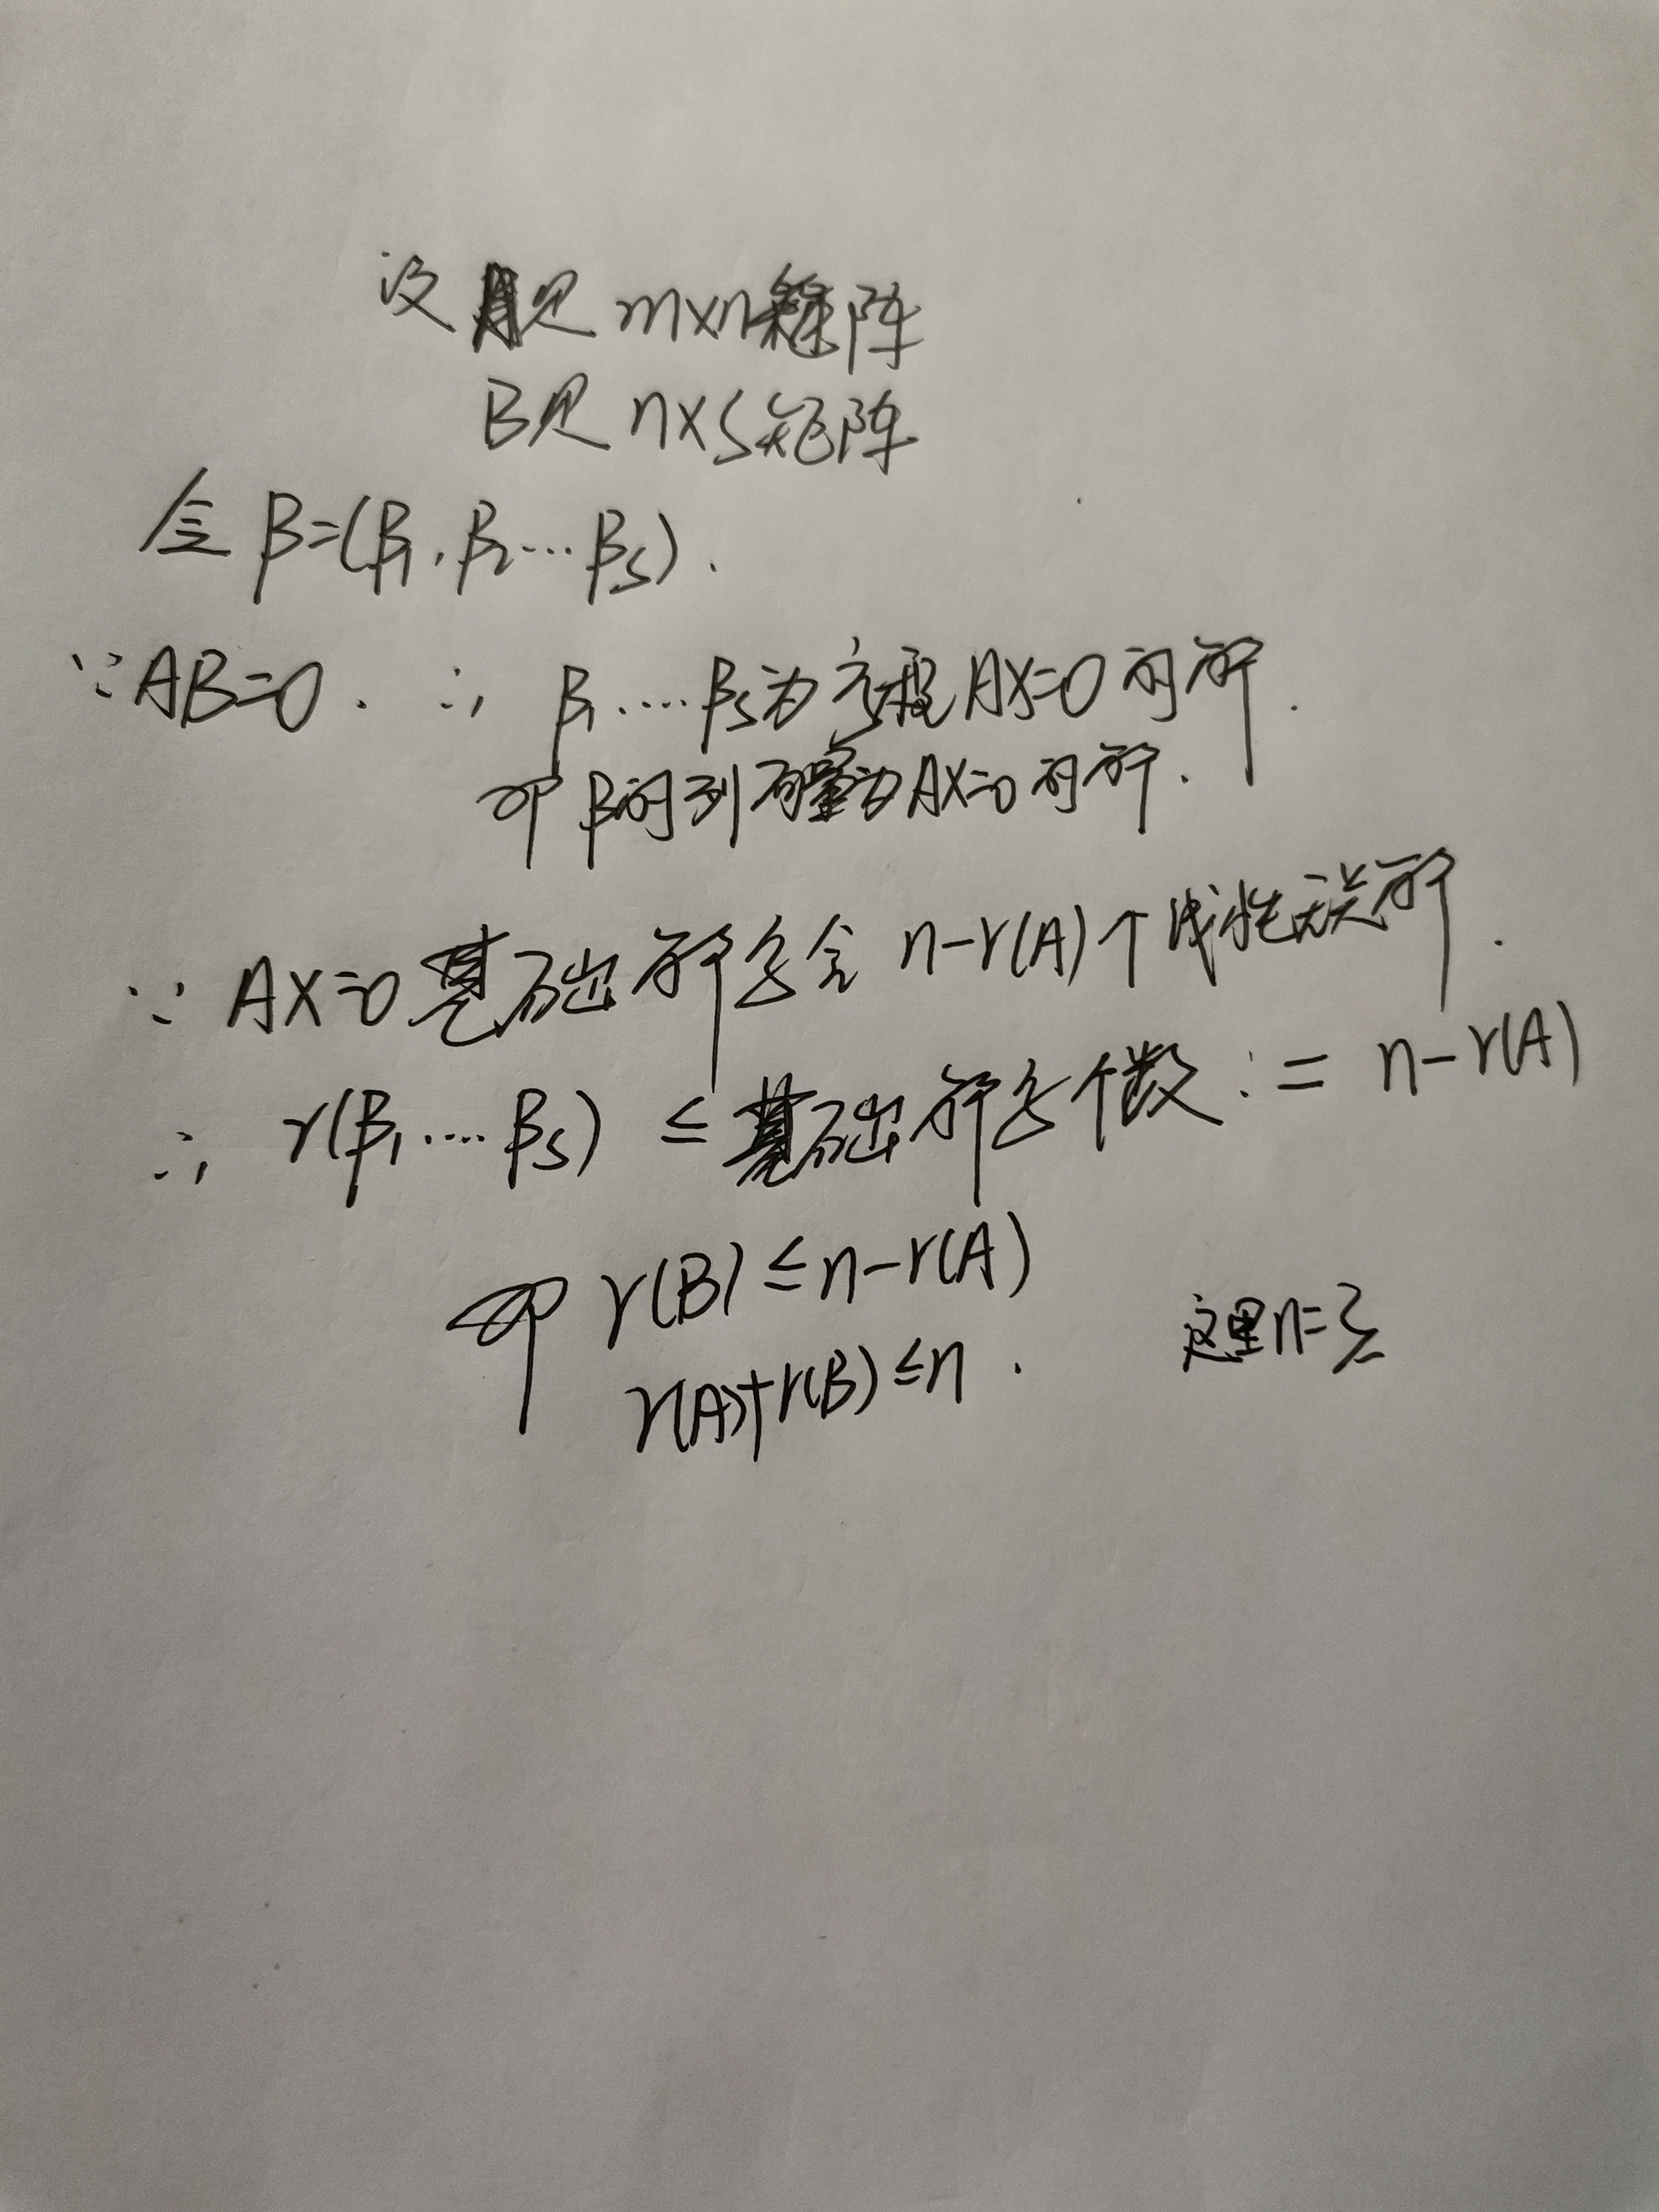 设A是m×n矩阵
B是n×s矩阵
令β=(β₁,β₂…βs).
∵AB=0. ∴ β₁....βs为方程AX=0的解.
即β的列向量为AX=0的解.
∵ AX=0基础解系含 n-r(A)个线性无关解.
∴ r(β₁....βs) ≤基础解系个数:= n-r(A)
即 r(B)≤n-r(A)
r(A)+r(B)≤n. 这里n=3